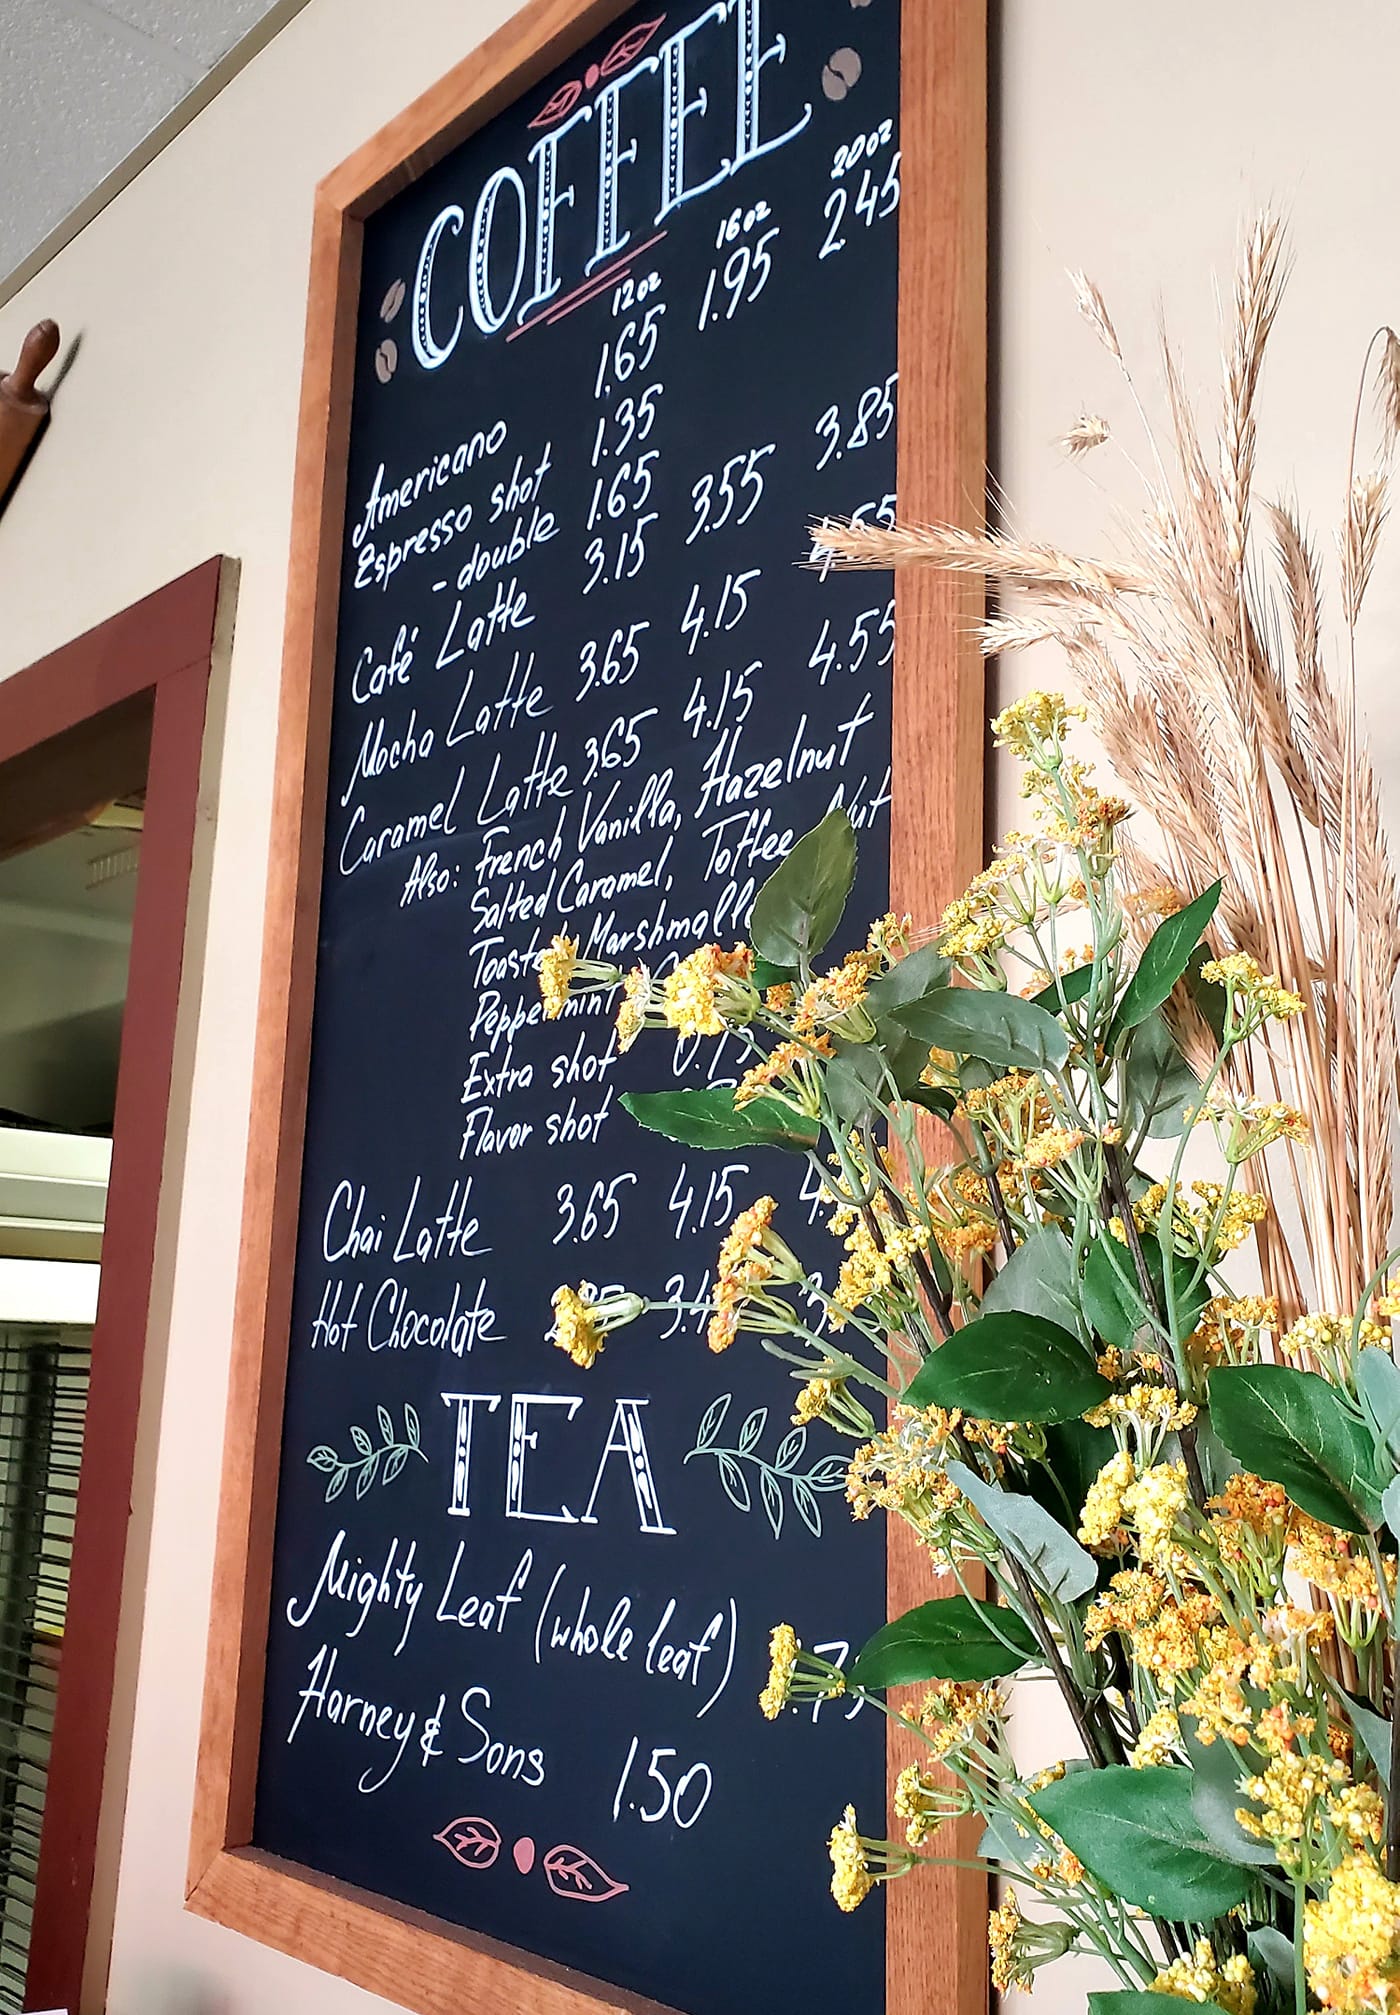 COFFEE
12oz 16oz 20oz
Americano 1.65 1.95 2.45
Espresso shot 1.35
- double 1.65
Café Latte 3.15 3.55 3.85
Mocha Latte 3.65 4.15 4.55
Caramel Latte 3.65 4.15 4.55
Also: French Vanilla, Hazelnut
Salted Caramel, Toffee Nut
Toasted
Peppermint
Extra shot
Flavor shot
Chai Latte 3.65 4.15
Hot Chocolate
TEA
Mighty Leaf (whole leaf)
Harney & Sons 1.50